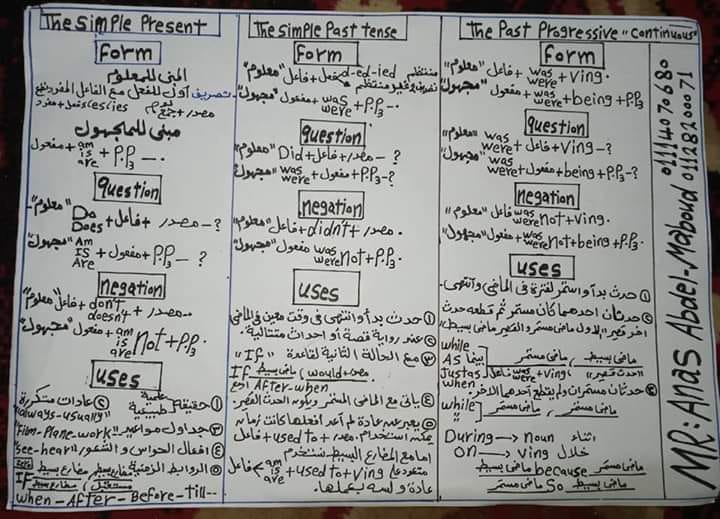 The Simple Present
Form
المبنى للمعلوم
تصريف أول للفعل مع الفاعل المفرد نضع
مصدر + جمع
s\es\ies + فعل + مفرد
مبنى للمجهول
مفعول + am is are + P.P3 ---.
question
"معلوم" Do Does + فاعل + مصدر --?
"مجهول" Am Is Are + مفعول + P.P3 --?
negation
"معلوم" فاعل + don't doesn't + مصدر ---.
"مجهول" مفعول + am is are not + P.P3 ---.
uses
① حقيقة علمية طبيعية ② عادات متكررة
"always-usually"
③ جداول مواعيد "Film-Plane-work"
④ افعال الحواس و الشعور "See-hear"
⑤ الروابط الزمنية
IF
when-After-Before-till---
The Simple Past tense
Form
"معلوم" فاعل + فعل d-ed-ied منتظم
"مجهول" مفعول + was were + P.P3 ---.
question
"معلوم" Did + فاعل + مصدر --?
"مجهول" was were + مفعول + P.P3 --?
negation
"معلوم" فاعل + didn't + مصدر.
"مجهول" مفعول was were not + P.P3.
uses
① حدث بدأ وانتهى فى وقت معين فى الماضى
② عند رواية قصة أو احداث متتالية.
③ مع الحالة الثانية لقاعدة "If"
If ماضى بسيط , would + مصدر
After-when
④ يأتى مع الماضى المستمر ويكون الحدث القصير.
⑤ يعبر عن عادة لم أعد افعلها كانت زمان
يمكن استخدام. مصدر + used to + فاعل
اما مع المضارع البسيط نستخدم
فاعل + am is are + used to + Ving
عادة ولسه بعملها.
The Past Progressive "Continuous"
Form
"معلوم" فاعل + was were + Ving.
"مجهول" مفعول + was were + being + P.P3
question
"معلوم" was were + فاعل + Ving --?
"مجهول" was were + مفعول + being + P.P3 --?
negation
"معلوم" فاعل was were not + Ving.
"مجهول" مفعول + was were not + being + P.P3.
uses
① حدث بدأ واستمر لفترة فى الماضى وانتهى.
② حدثان احدهما كان مستمر ثم قطعه حدث
اخر قصير "الاول ماضى مستمر و القصير ماضى بسيط"
while
As
Just as
when
بينما
ماضى مستمر , ماضى بسيط
فاعل + was were + Ving , "حدث قصير"
③ حدثان مستمران ولم يقطع أحدهما الاخر.
while ماضى مستمر , ماضى مستمر
During → noun اثناء
on → ving خلال
ماضى بسيط because ماضى مستمر
ماضى مستمر So ماضى بسيط
MR: Anas Abdel-Maboud 01114070680
01118200071